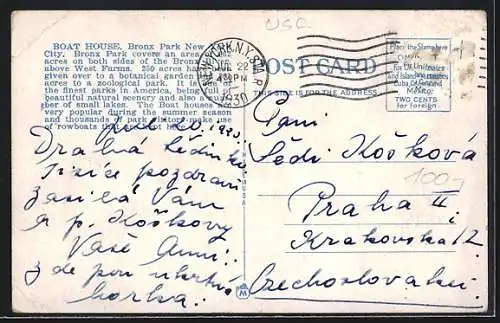 USA
BOAT HOUSE, Bronx Park New
City. Bronx Park covers an area
acres on both sides of the Bronx
above West Farms. 250 acres ha
given over to a botanical garden
acres to a zoological park. It is
the finest parks in America, being full
beautiful natural scenery and also a
ber of small lakes. The Boat house
very popular during the summer season
and thousands of park visitors make use
of rowboats that are kept
NEW YORK, N.Y.
22
PM
1930
POST CARD
THIS SIDE IS FOR THE ADDRESS
Place the Stamp here
for United States
and Island
Cuba, Canada
Mexico.
TWO CENTS
for Foreign.
20. 1930.
Drahná Lédinko
Tisíce pozdravů
zasílá Vám
a p. Koškovy
Vaše Anni.
Zde pou
horka.
Paní
Lédi Koškova
100,-
Praha II.
Krakovska 12
Czechoslovakei
M